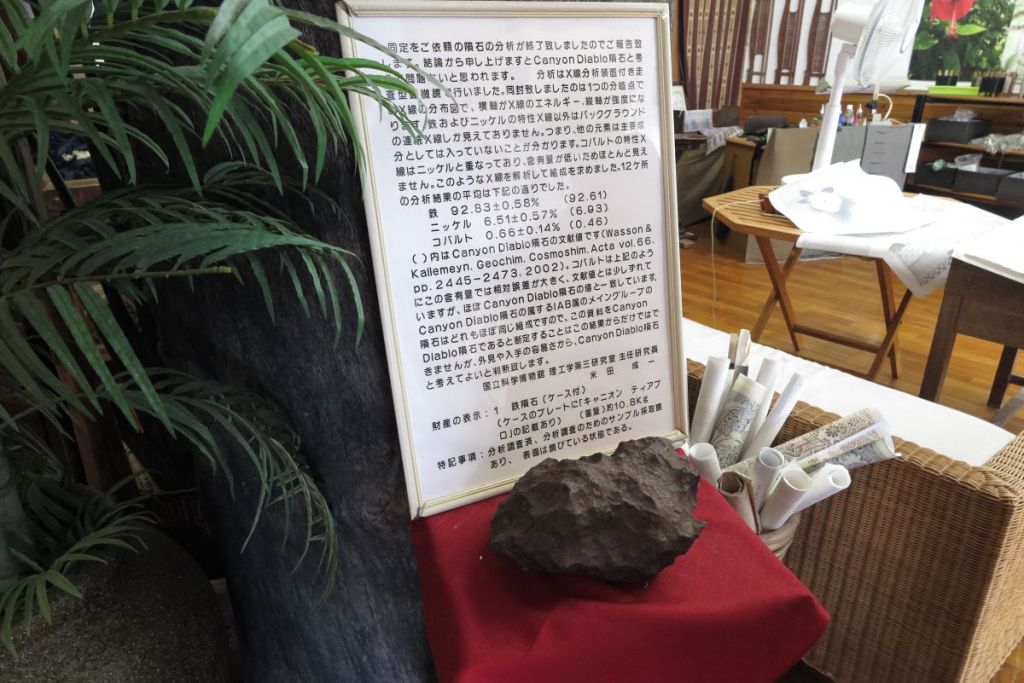 同定をご依頼の隕石の分析が終了致しましたのでご報告致
します。結論から申し上げますとCanyon Diablo隕石と考
問題ないと思われます。 分析はX線分析装置付き走
査型 微鏡で行いました。同封致しましたのは1つの分岐点で
のX線の分布図で、横軸がX線のエネルギー、縦軸が強度にな
ります。鉄およびニッケルの特性X線以外はバックグラウンド
の連続X線しか見えておりません。つまり、他の元素は主要成
分としては入っていないことが分かります。コバルトの特性X
線はニッケルと重なっており、含有量が低いためほとんど見え
ません。このようなX線を解析して組成を求めました。12ケ所
の分析結果の平均は下記の通りでした。
鉄 92.83±0.58% (92.61)
ニッケル 6.51±0.57% (6.93)
コバルト 0.66±0.14% (0.46)
( )内はCanyon Diablo隕石の文献値です(Wasson &
Kallemeyn, Geochim. Cosmoshim. Acta vol.66,
pp. 2445-2473, 2002)。コバルトは上記のよう
にこの含有量では相対誤差が大きく、文献値とは少しずれて
いますが、ほぼCanyon Diablo隕石の値と一致しています。
Canyon Diablo隕石の属するIAB属のメイングループの
隕石はどれもほぼ同じ組成ですので、この資料をCanyon
Diablo隕石であると断定することはこの結果からだけではで
きませんが、外見や入手の容易さから、Canyon Diablo隕石
と考えてよいと判断致します。
国立科学博物館 理工学第三研究室 主任研究員
米田 成一
財産の表示:1 鉄隕石(ケース付)
(ケースのプレートに「キャニオン ティアブ
ロ」の記載あり) (重量)約10.8Kg
特記事項:分析調査済、分析調査のためのサンプル採取痕
あり、表面は錆びている状態である。